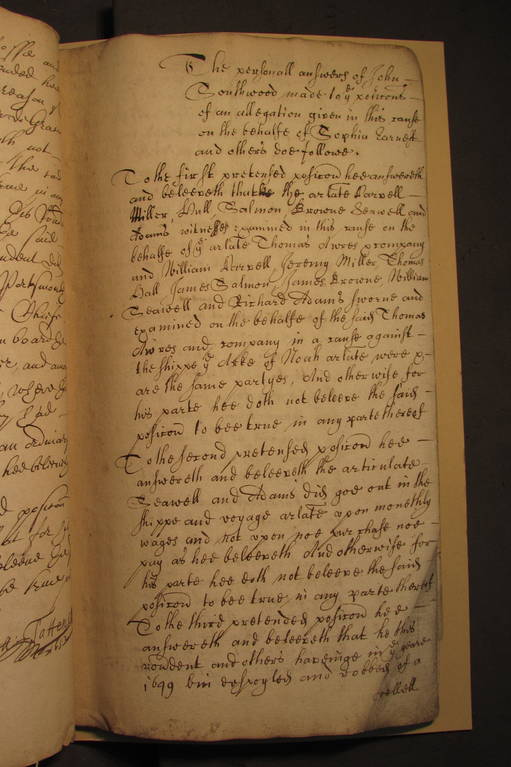 offe and
nded her
reason of
Gra
th act
the said
in any
he said
Portsmouth
Chiefe
on board
er, and an
an ordinary
hee beleeveth
d position
at for
The personall answers of John
Southwood made to ye positions
of an allegation given in this cause
on the behalfe of Sophia Carnet
and others doe followe.
To the first pretended position hee answereth
and beleeveth that the arlate Barrell
Miller, Hall Salmon Browne Seawell and
Adams witnesses examined in this cause on the
behalfe of ye arlate Thomas Awres company
and William Barrell, Jeremy Miller Thomas
Hall James Salmon, James Browne William
Seawell and Richard Adams sworne and
examined on the behalfe of the said Thomas
Awres and company in a cause against
the shippe ye Arke of Noah arlate were &
are the same partyes, And otherwise for
his parte hee doth not beleeve the said
position to bee true in any parte thereof
To the second pretended position hee
answereth and beleeveth the articulate
Seawell and Adams did goe out in the
shippe and voyage arlate upon monethly
wages and not upon noe purchase noe
pay as hee beleeveth And otherwise for
his parte hee doth not beleeve the said
position to bee true in any parte thereof
To the third pretended position hee
answereth and beleeveth that he this
rondent and others haveinge in ye yeare
1649 bin despoyled and robbed of a
vessell